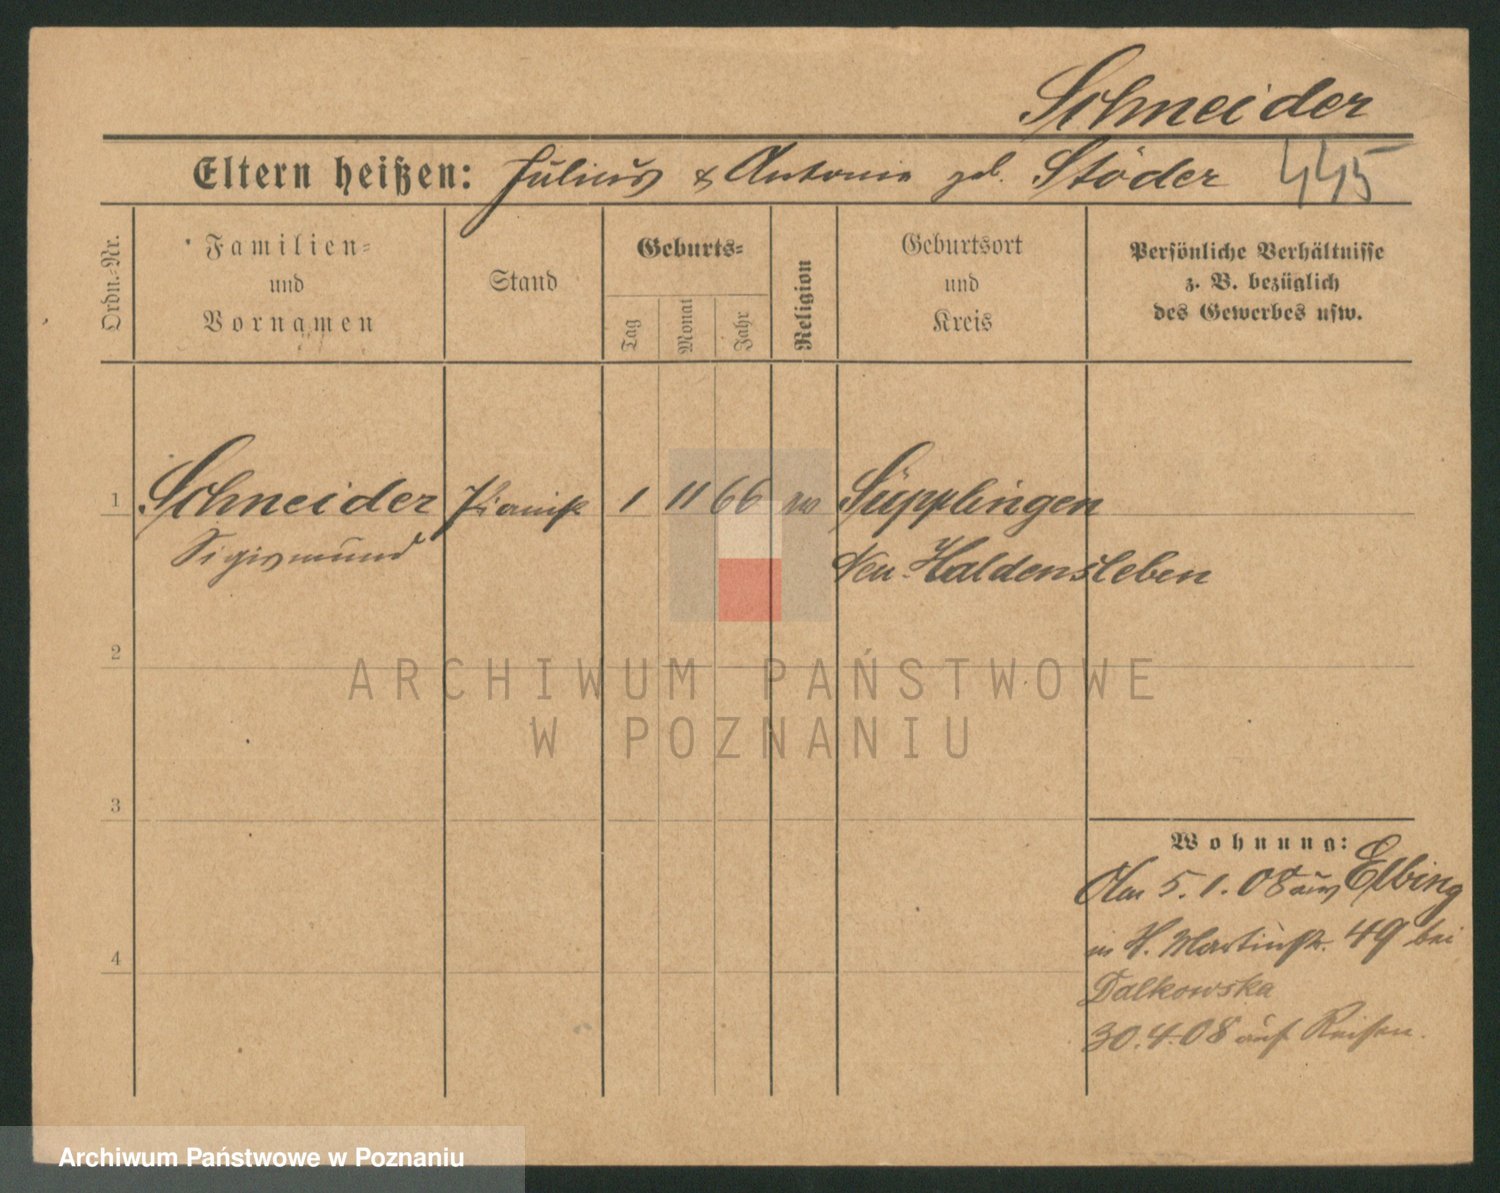 Schneider
Eltern heißen: Julius & Antonie geb. Stöder 445
Ordn.-Nr.
Familien-
und
Vornamen
Stand
Geburts-
Tag
Monat
Jahr
Religion
Geburtsort
und
Kreis
Persönliche Verhältnisse
z. B. bezüglich
des Gewerbes usw.
1 Schneider Pianist 1 11 66 Süpplingen
Sigismund Neu-Haldensleben
2
ARCHIWUM PAŃSTWOWE
W POZNANIU
3
Wohnung:
Am 5.1.08 aus Elbing
in H. Martinstr. 49 bei
4
Dalkowska
30.4.08 auf Reisen.
Archiwum Państwowe w Poznaniu